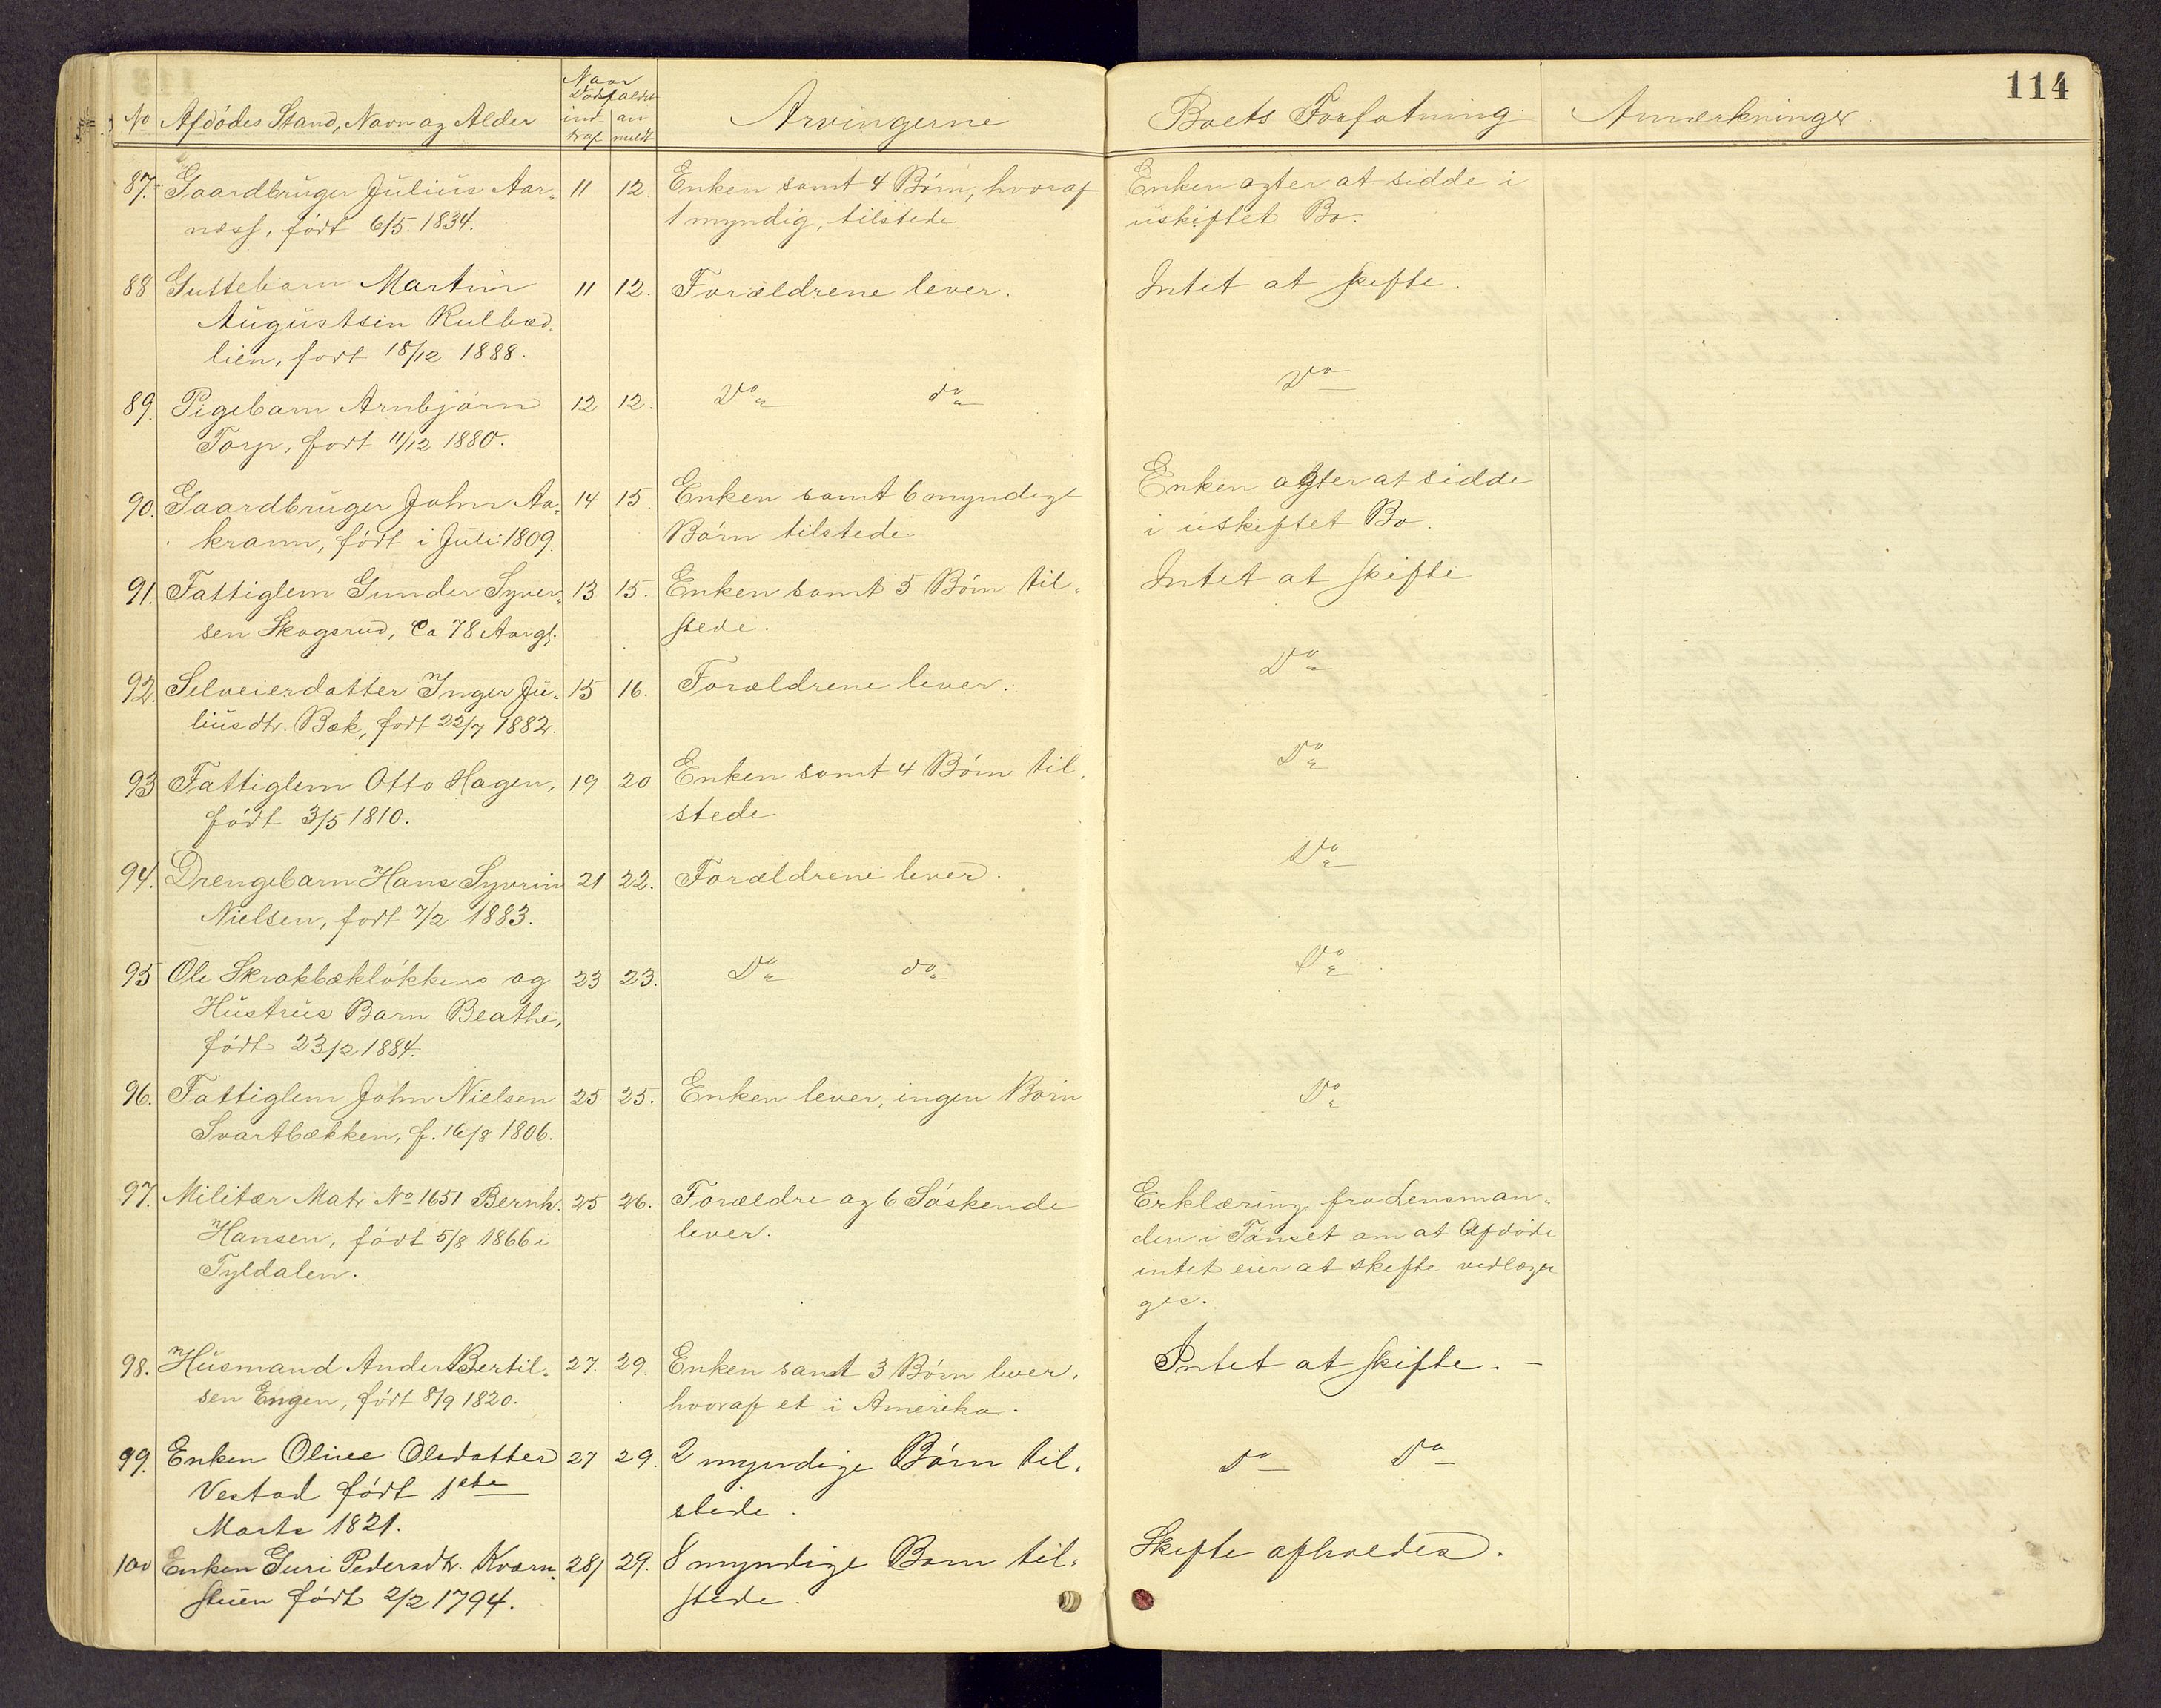 114
No Afdödes Stand, Navn og Alder
Naar Dødsfaldet
ind traf
an meldt
Arvingerne
Boets Forfatning
Anmærkninger
87. Gaardbruger Julius Aar- 11 12. Enken samt 4 Børn, hvoraf Enken agter at sidde i
næss, født 6/5 1834. 1 myndig, tilstede uskiftet Bo.
88 Guttebarn Martin 11 12. Forældrene lever. Intet at skifte.
Augustsen Kulbæd-
lien, født 18/12 1888.
89. Pigebarn Arnbjørn 12 12. Do do Do
Torp, født 11/12 1880.
90. Gaardbruger John Aa- 14 15. Enken samt 6 myndige Enken agter at sidde
krann, født i Juli 1809. Børn tilstede i uskiftet Bo.
91. Fattiglem Gunder Syver- 13 15. Enken samt 5 Børn til- Intet at skifte
sen Skogsrud, Ca 78 Aar gl. stede.
92. Selveierdatter Inger Ju- 15 16. Forældrene lever. Do
liusdtr. Bæk, født 22/7 1882.
93 Fattiglem Otto Hagen, 19 20 Enken samt 4 Børn til- Do
født 3/5 1810. stede
94. Drengebarn Hans Syverin 21 22. Forældrene lever. Do
Nielsen, født 7/2 1883.
95 Ole Skrakbækløkkens og 23 23. Do do Do
Hustrus Barn Beathe,
født 23/2 1884.
96. Fattiglem John Nielsen 25 25. Enken lever, ingen Børn Do
Svartbækken, f. 16/8 1806.
97. Militær Matr. No 1651 Bernh. 25 26. Forældre og 6 Søskende Erklæring fra Lensman-
Hansen, født 5/8 1866 i lever. den i Tønset om at Afdøde
Tyldalen. intet eier at skifte vedlæg
ges.
98. Husmand Anders Bertil- 27. 29. Enken samt 3 Børn lever, Intet at skifte. -
sen Engen, født 8/9 1820. hvoraf et i Amerika.
99. Enken Oline Olsdatter 27 29. 2 myndige Børn til- Do Do
Vestad født 1ste stede.
Marts 1821.
100 Enken Guri Pedersdtr. Kværn- 28/ 29. 8 myndige Børn til- Skifte afholdes.
stuen født 2/2 1794. stede.